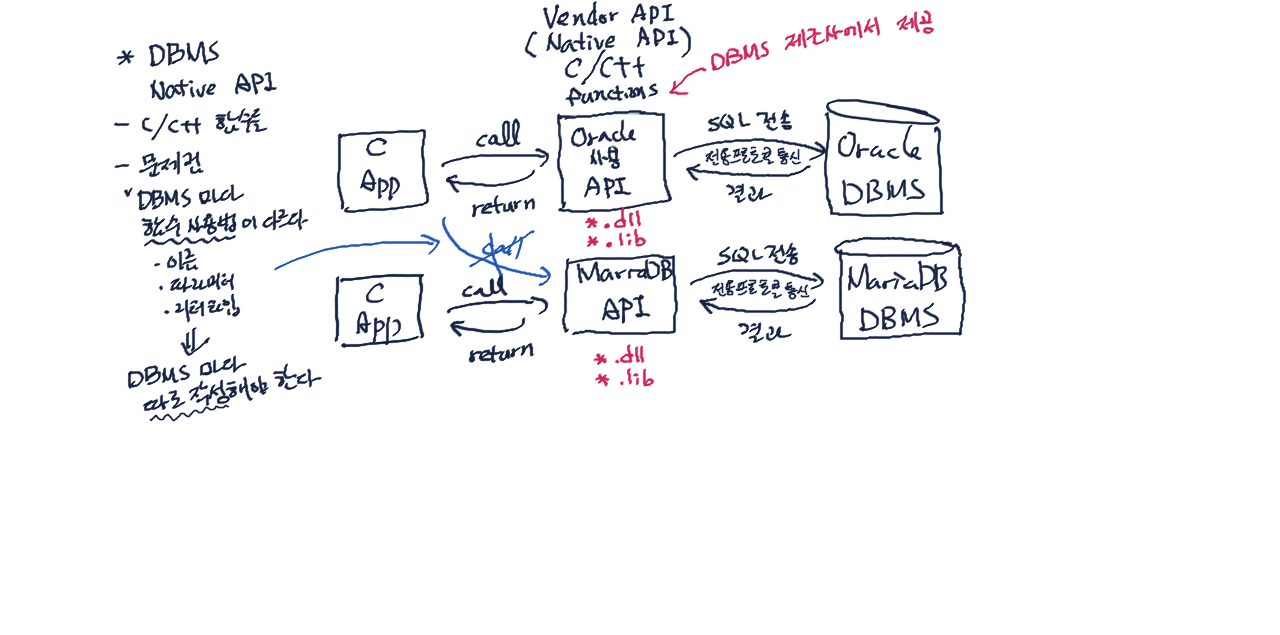 * DBMS
Native API
- C/C++ 함수들
- 문제점
✓ DBMS 마다
함수 사용법이 다르다
· 이름
· 파라미터
· 리턴타입
⇓
DBMS 마다
따로 작성해야 한다
Vendor API
(Native API)
C/C++
functions
DBMS 제조사에서 제공
C
App
call
return
Oracle
사용
API
*.dll
*.lib
SQL 전송
전용프로토콜 통신
결과
Oracle
DBMS
call
C
App
call
return
MariaDB
API
*.dll
*.lib
SQL 전송
전용프로토콜 통신
결과
MariaDB
DBMS